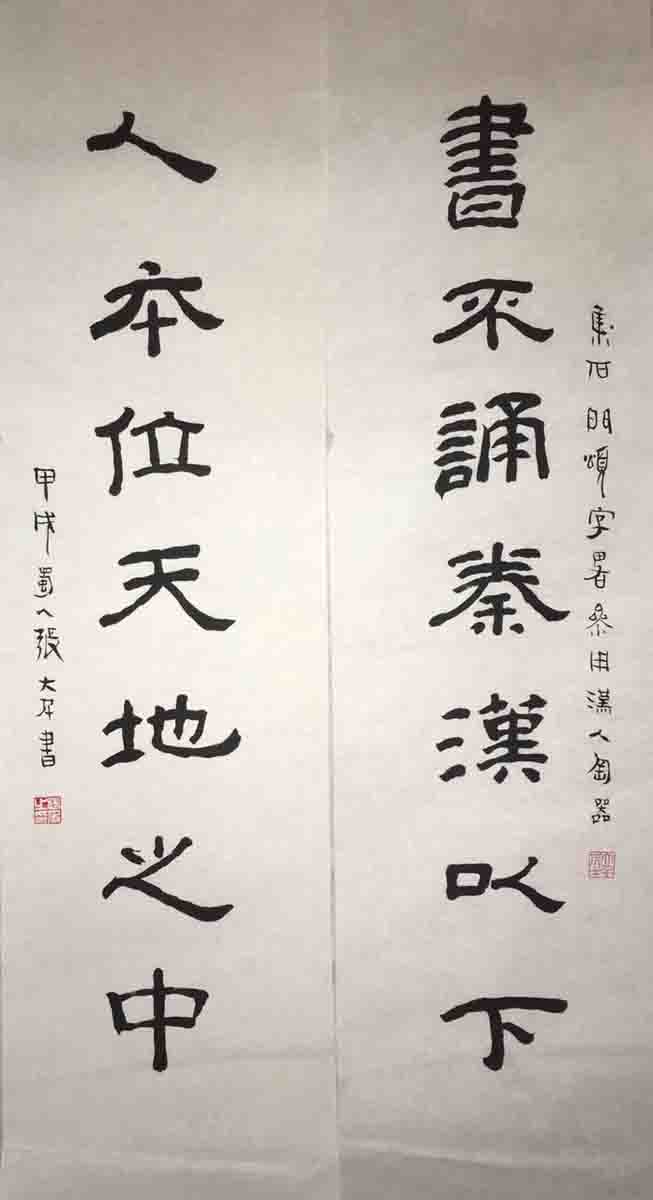 集石門頌字畧參用漢人匋器
書不誦秦漢以下
人本位天地之中
甲戌蜀人張大千書